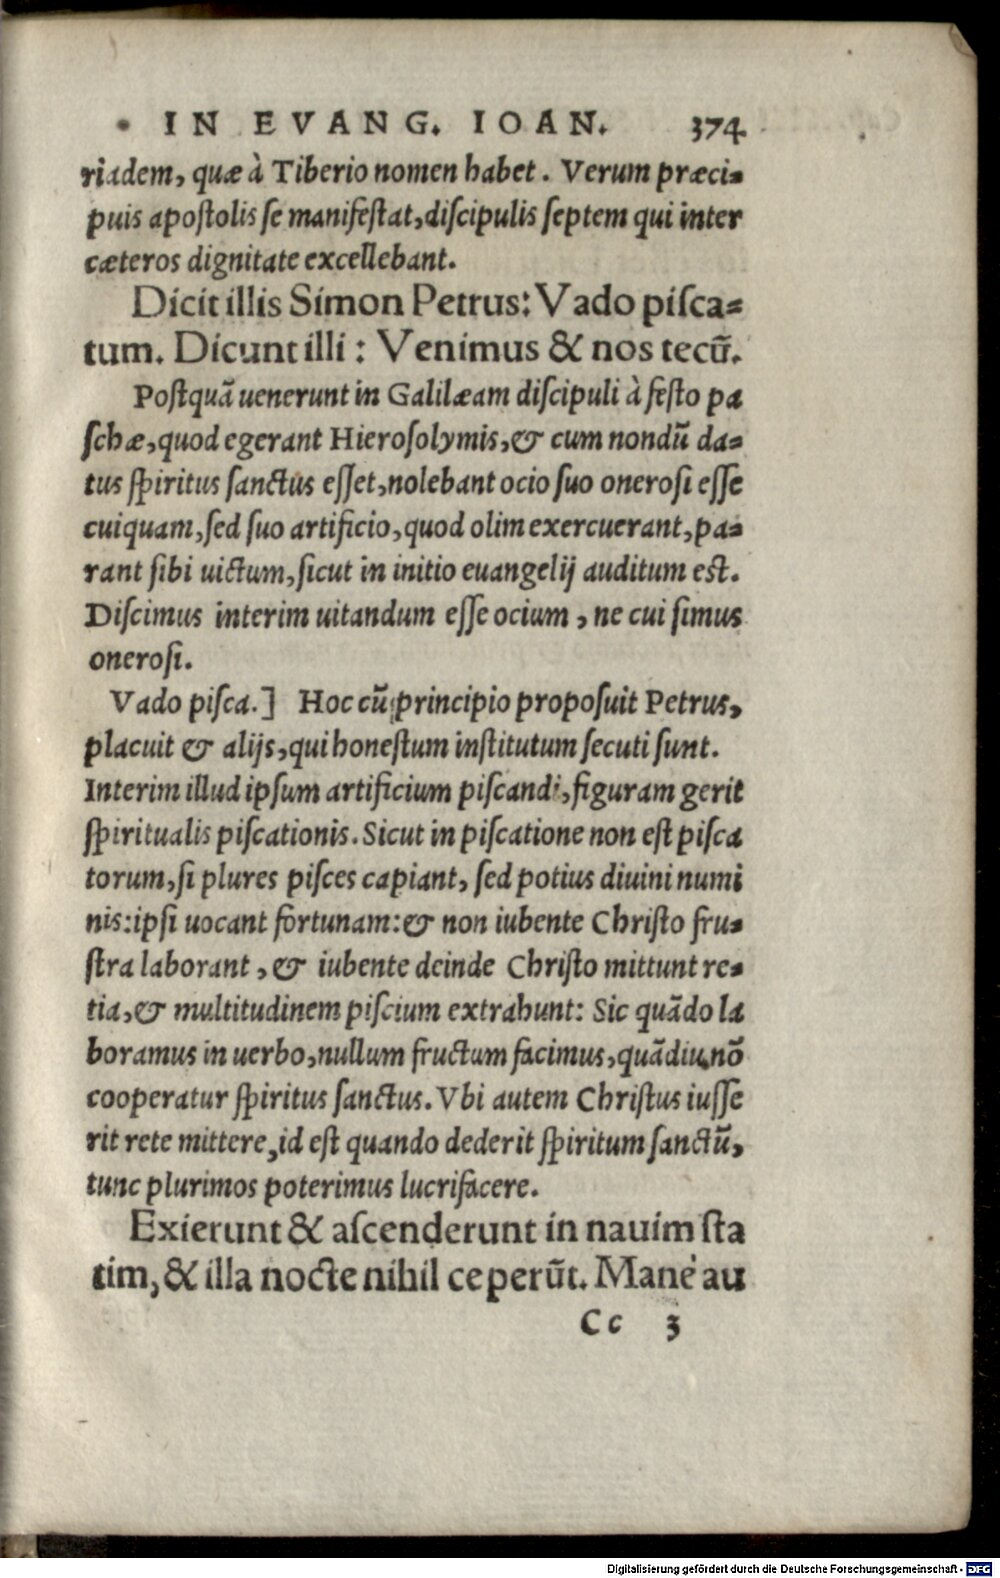 IN EVANG. IOAN. 374
riadem, quæ à Tiberio nomen habet. Verum præci-
puis apoſtolis ſe manifeſtat, diſcipulis ſeptem qui inter
cæteros dignitate excellebant.
Dicit illis Simon Petrus: Vado piſca-
tum. Dicunt illi: Venimus & nos tecū.
Poſtquã uenerunt in Galilæam diſcipuli à feſto pa
ſchæ, quod egerant Hieroſolymis, & cum nondū da-
tus ſpiritus ſanctus eſſet, nolebant ocio ſuo oneroſi eſſe
cuiquam, ſed ſuo artificio, quod olim exercuerant, pa-
rant ſibi uictum, ſicut in initio euangelij auditum eſt.
Diſcimus interim uitandum eſſe ocium, ne cui ſimus
oneroſi.
Vado piſca.] Hoc cū principio propoſuit Petrus,
placuit & alijs, qui honeſtum inſtitutum ſecuti ſunt.
Interim illud ipſum artificium piſcandi, figuram gerit
ſpiritualis piſcationis. Sicut in piſcatione non eſt piſca
torum, ſi plures piſces capiant, ſed potius diuini numi
nis: ipſi uocant fortunam: & non iubente Chriſto fru-
ſtra laborant, & iubente deinde Chriſto mittunt re-
tia, & multitudinem piſcium extrahunt: Sic quãdo la
boramus in uerbo, nullum fructum facimus, quãdiu nō
cooperatur ſpiritus ſanctus. Vbi autem Chriſtus iuſſe
rit rete mittere, id eſt quando dederit ſpiritum ſanctū,
tunc plurimos poterimus lucrifacere.
Exierunt & aſcenderunt in nauim ſta
tim, & illa nocte nihil ceperūt. Mane au
Cc 3
Digitalisierung gefördert durch die Deutsche Forschungsgemeinschaft - DFG